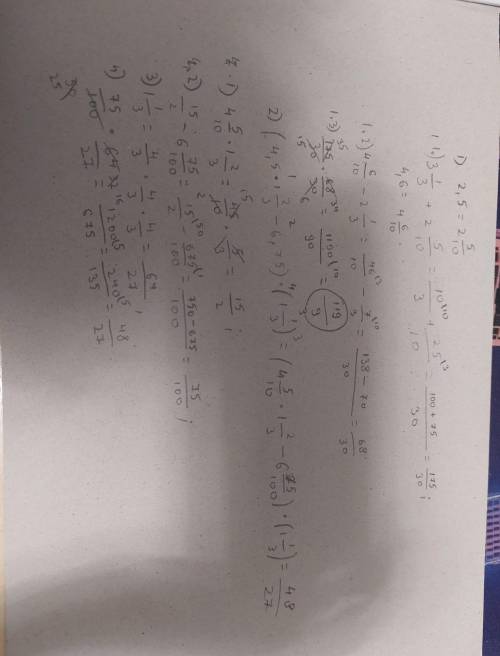 1) 2,5 = 2 5/10
1.1) 3 1/3 + 2 5/10 = 10/3 + 25/10 = (100 + 75)/30 = 175/30 ;
4,6 = 4 6/10
1.2) 4 6/10 - 2 1/3 = 46/10 - 7/3 = (138 - 70)/30 = 68/30
1.3) 175/30 · 68/30 = 1190/90 = 119/9
2) (4,5 · 1 2/3 - 6,75) · (1 1/3)³ = (4 5/10 · 1 2/3 - 6 75/100) · (1 1/3) = 48/27
4.1) 4 5/10 · 1 2/3 = 45/10 · 5/3 = 15/2 ;
4.2) 15/2 - 6 75/100 = 15/2 - 675/100 = (750 - 675)/100 = 75/100 ;
3) 1 1/3 = 4/3 · 4/3 · 4/3 = 64/27
4) 75/100 · 64/27 = 1200/675 = 240/135 = 48/27